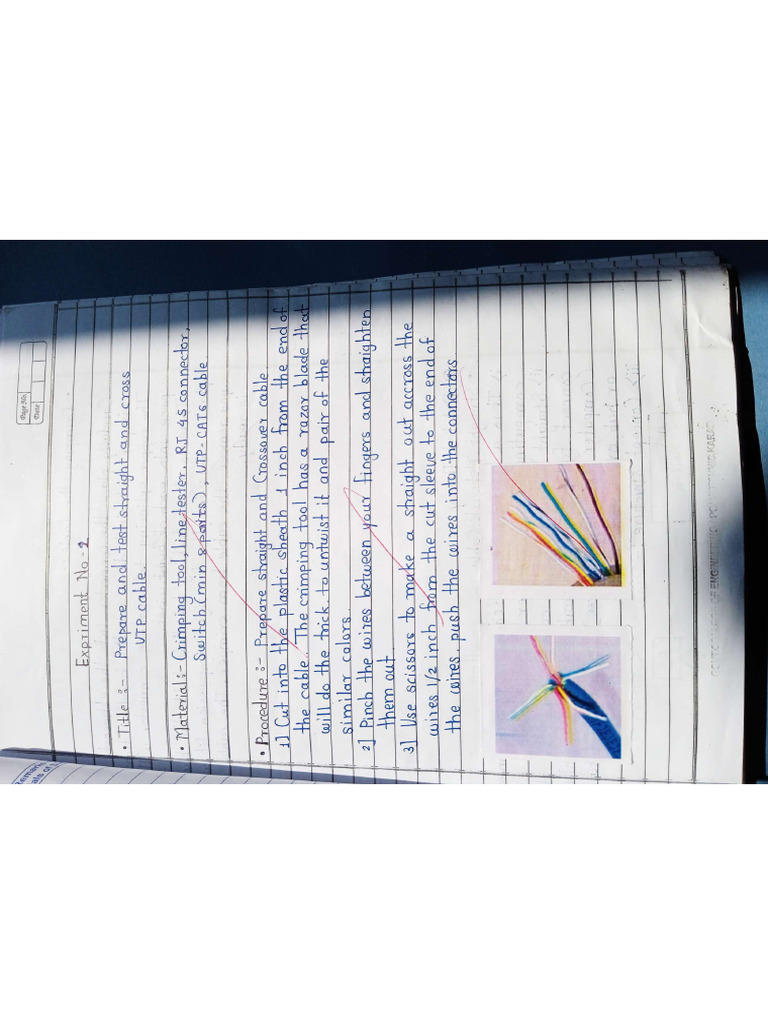 Page No.
Date
Expriment No - 2
• Title :- Prepare and test straight and cross
UTP cable.
• Material:- Crimping tool, line tester, RJ 45 connector,
Switch (min 8 ports), UTP-CAT6 cable
• Procedure :- Prepare straight and Crossover cable
1] Cut into the plastic sheath 1 inch from the end of
the cable. The crimping tool has a razor blade that
will do the trick. to untwist it and pair of the
similar colors.
2] Pinch the wires between your fingers and straighten
them out
3] Use scissors to make a straight out accross the
wires 1/2 inch from the cut sleeve to the end of
the wires. push the wires into the connectors